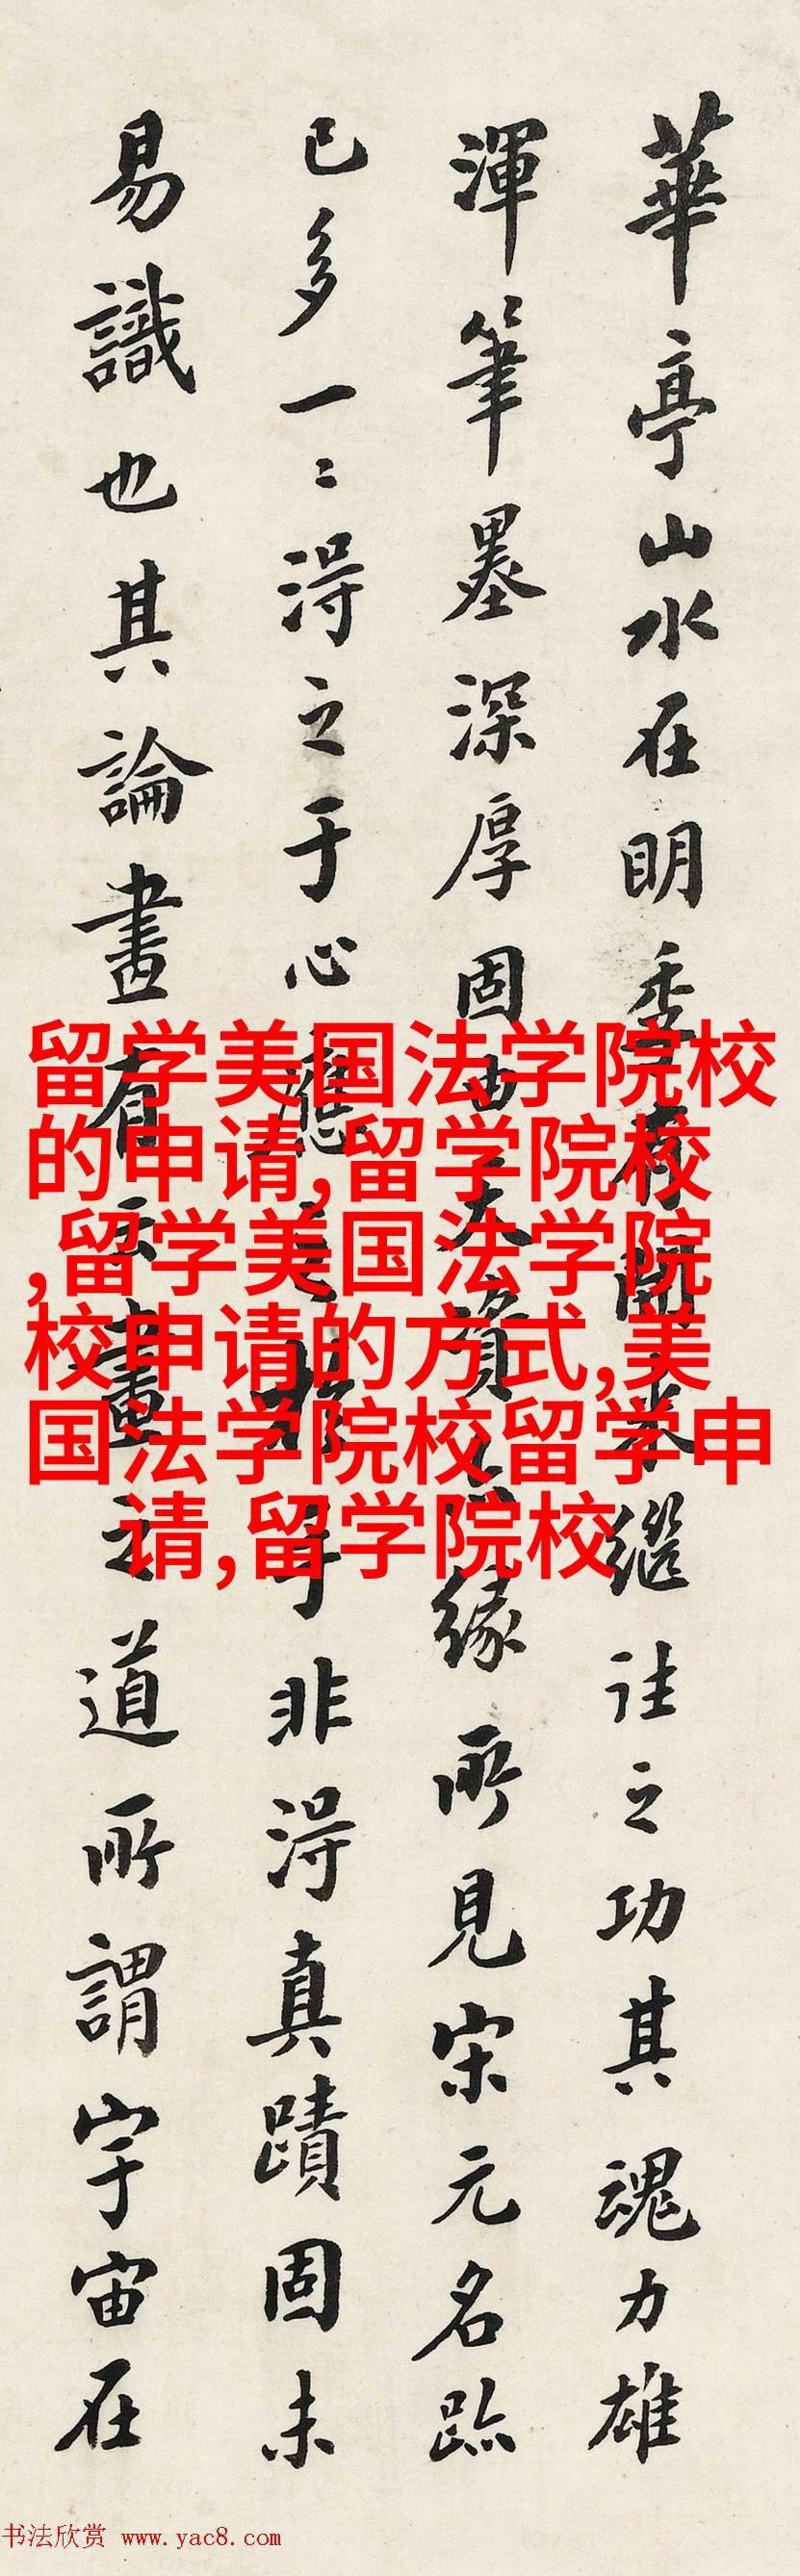 華亭山水在明季有開來繼往之功其魂力雄
渾筆墨深厚固由天資緣所見宋元名跡
已多一二淂之于心應之于手非淂真蹟固未
易識也其論畫有云畫之道所謂宇宙在
留学美国法学院校
的申请,留学院校
,留学美国法学院
校申请的方式,美
国法学院校留学申
请,留学院校
书法欣赏 www.yac8.com